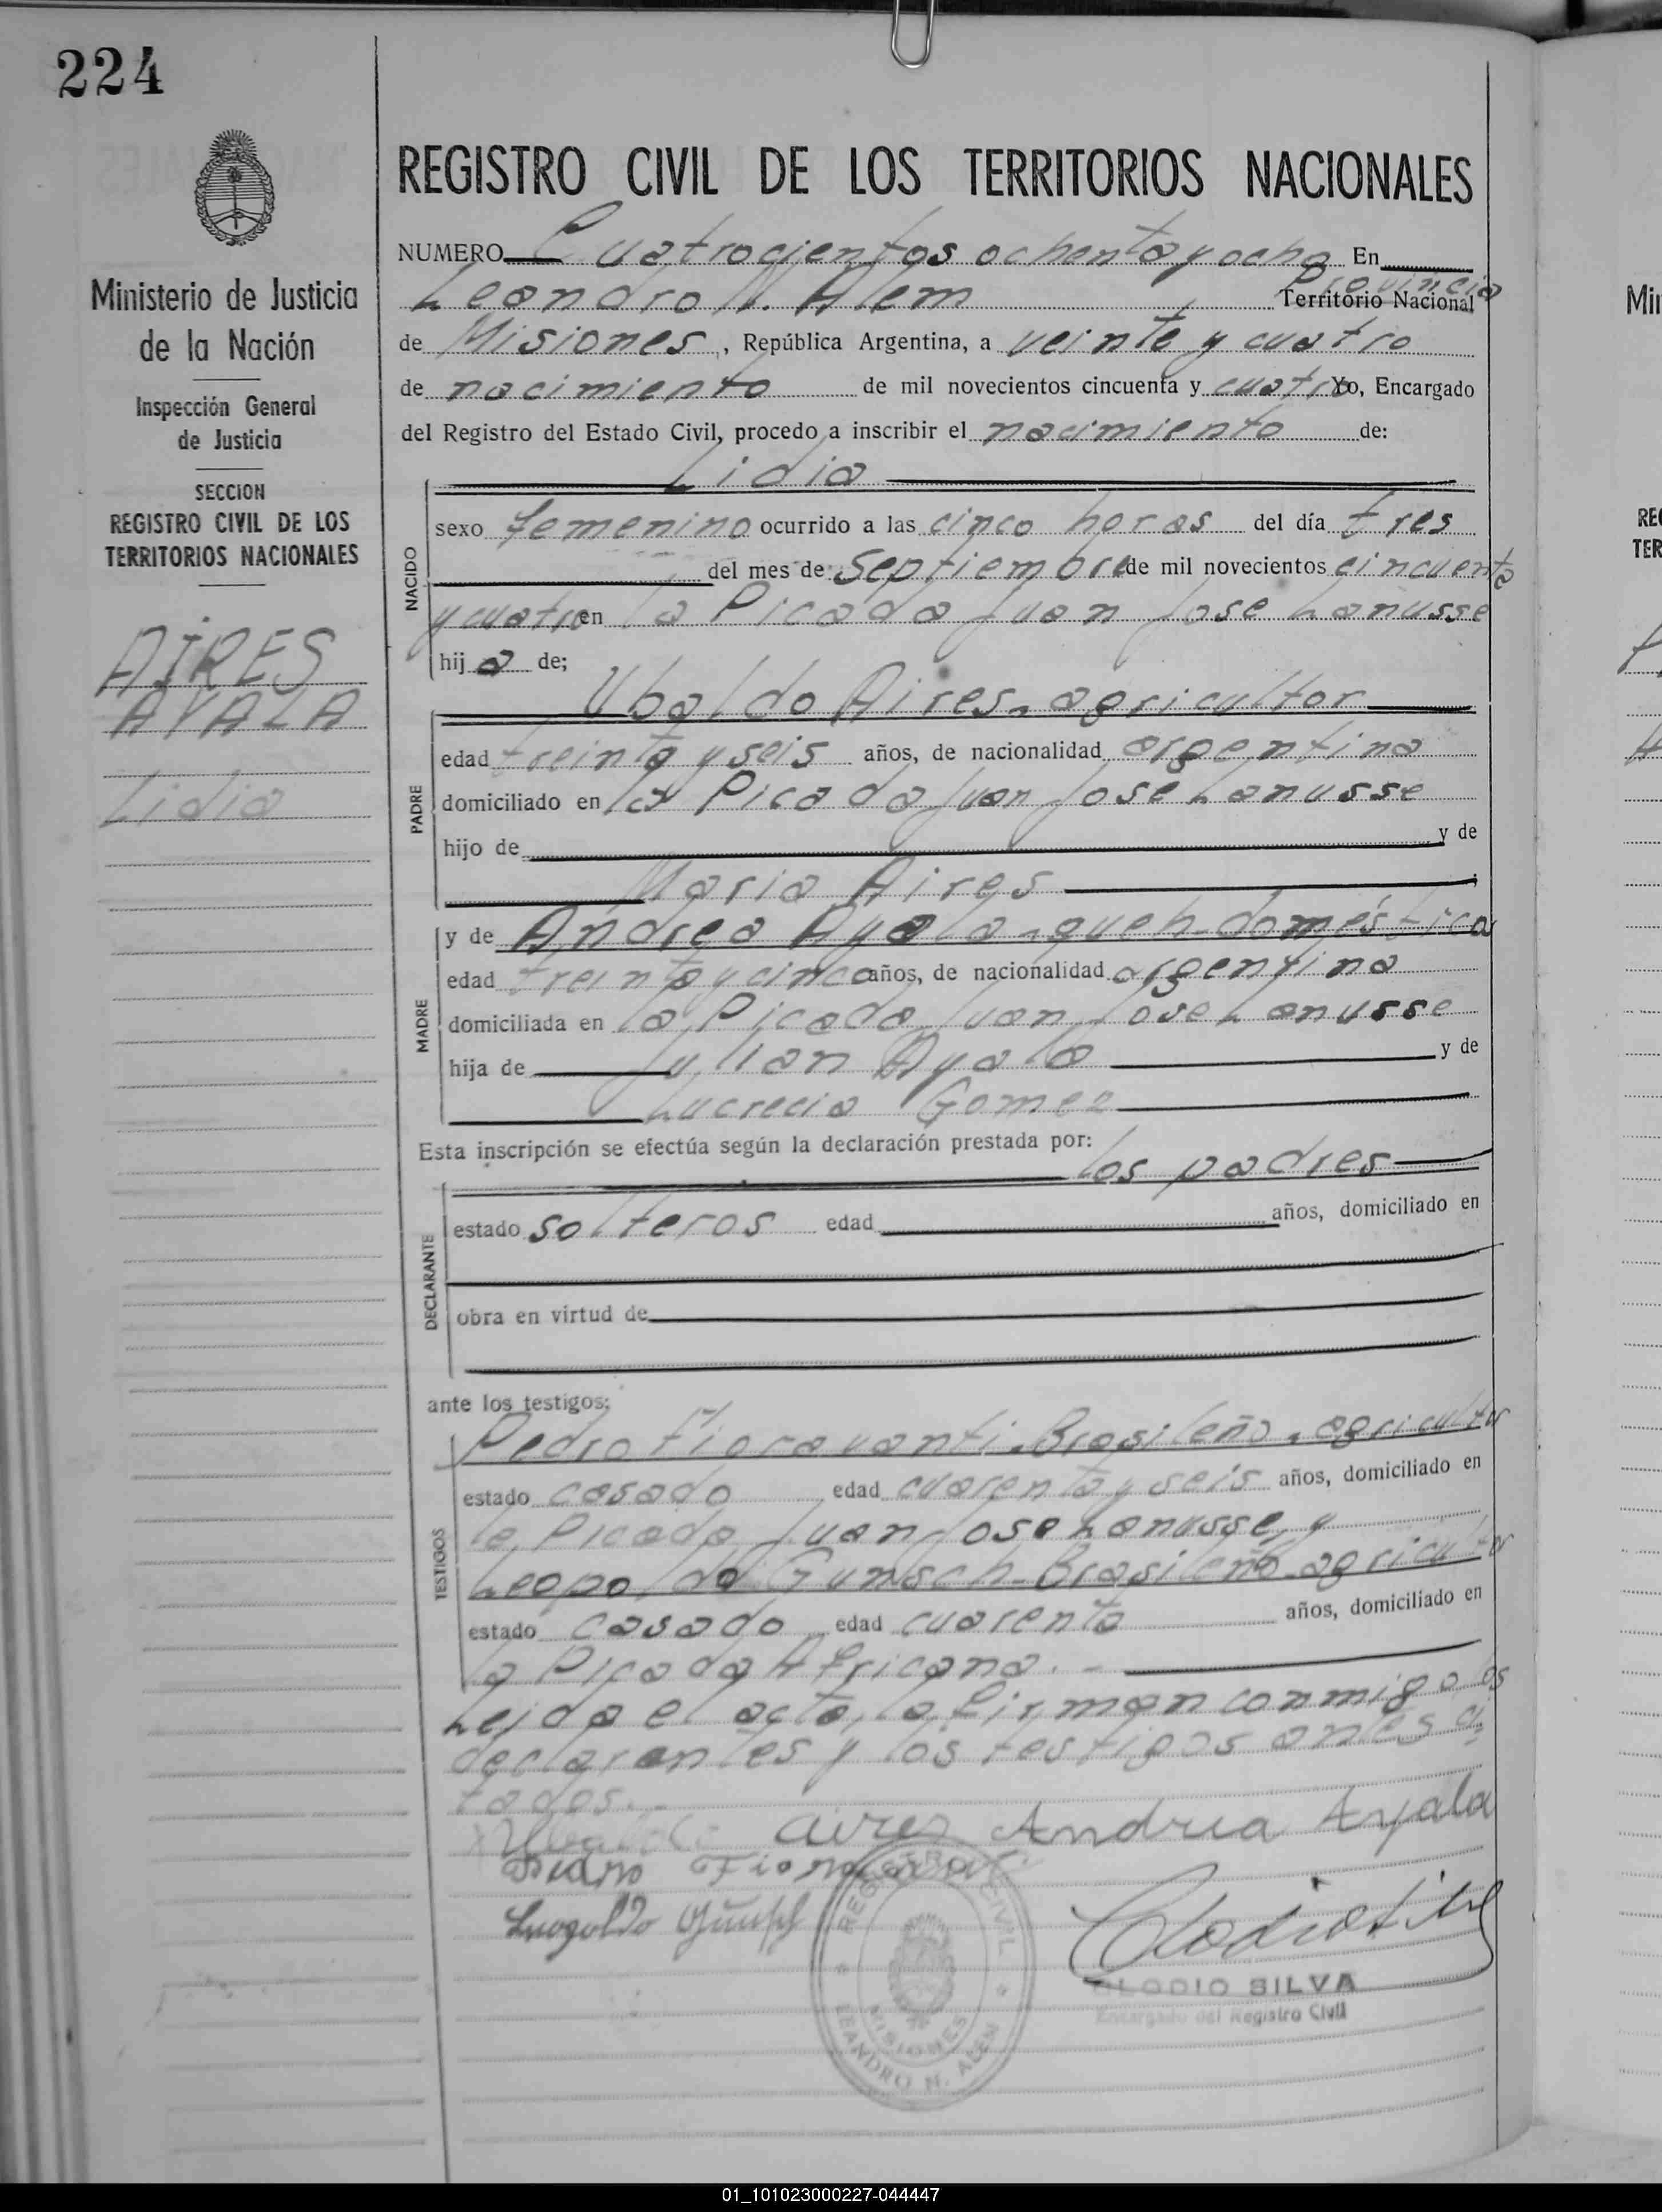 224
Ministerio de Justicia
de la Nación
Inspección General
de Justicia
SECCION
REGISTRO CIVIL DE LOS
TERRITORIOS NACIONALES
AIRES
AYALA
Lidia
REGISTRO CIVIL DE LOS TERRITORIOS NACIONALES
NUMERO Cuatrocientos ochenta y ocho En
Provincia
Leandro N. Alem Territorio Nacional
de Misiones, República Argentina, a veinte y cuatro
de nacimiento de mil novecientos cincuenta y cuatro Yo, Encargado
del Registro del Estado Civil, procedo a inscribir el nacimiento de:
Lidia
NACIDO
sexo femenino ocurrido a las cinco horas del día tres
del mes de Septiembre de mil novecientos cincuenta
y cuatro en la Picada Juan Jose Lanusse
hija de;
Ubaldo Aires - agricultor
PADRE
edad treinta y seis años, de nacionalidad argentina
domiciliado en la Picada Juan Jose Lanusse
hijo de y de
Maria Aires
y de Andrea Ayala - queh. doméstica
MADRE
edad treinta y cinco años, de nacionalidad argentina
domiciliada en la Picada Juan Jose Lanusse
hija de Julian Ayala y de
Lucrecia Gomez
Esta inscripción se efectúa según la declaración prestada por:
los padres
DECLARANTE
estado solteros edad años, domiciliado en
obra en virtud de
ante los testigos:
Pedro Fioravanti - Brasileño - agricultor
TESTIGOS
estado casado edad cuarenta y seis años, domiciliado en
la Picada Juan Jose Lanusse, y
Leopoldo Gunsch - Brasileño - agricultor
estado casado edad cuarenta años, domiciliado en
la Picada Africana. -
Leida el acta, la firman conmigo los
declarantes y los testigos antes ci-
tados. -
Ubaldo aires Andrea Ayala
Leopoldo
REGISTRO CIVIL
MISIONES
LEANDRO N. ALEN
CLODIO SILVA
Encargado del Registro Civil
Min
REG
TER
01_101023000227-044447